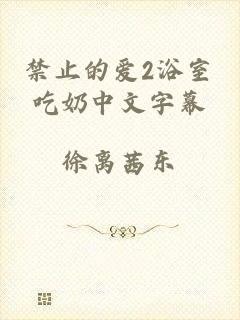 禁止的爱2浴室
吃奶中文字幕
徐离茜东